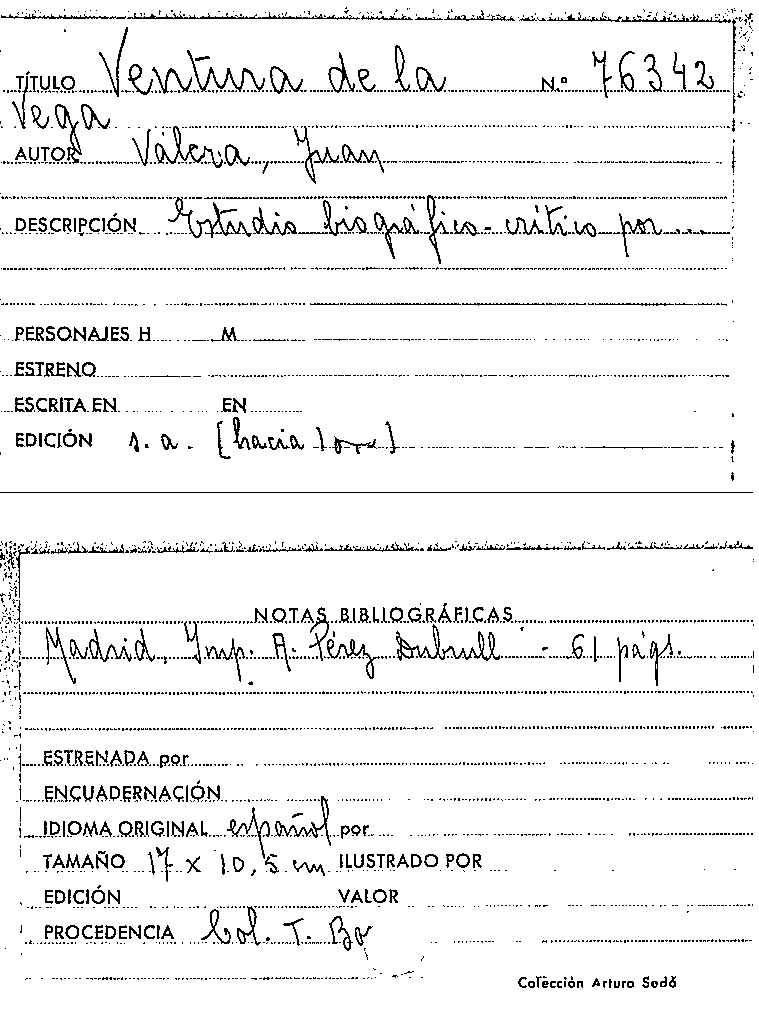 TÍTULO Ventura de la N.º 76342
Vega
AUTOR Valera, Juan
DESCRIPCIÓN Estudio biográfico-crítico por ...
PERSONAJES H M
ESTRENO
ESCRITA EN EN
EDICIÓN s. a. [hacia
NOTAS BIBLIOGRÁFICAS
Madrid, Imp. A. Pérez Dubrull - 61 págs.
ESTRENADA por
ENCUADERNACIÓN
IDIOMA ORIGINAL español por
TAMAÑO 17 x 10,5 cm ILUSTRADO POR
EDICIÓN VALOR
PROCEDENCIA Col. T. Bo
Colección Arturo Sedó